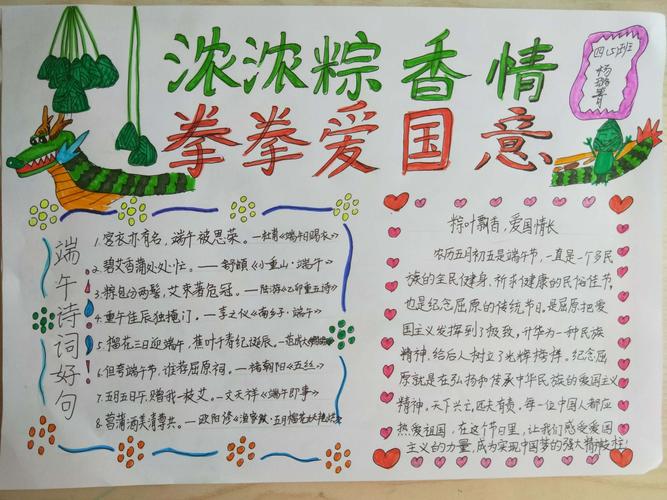 浓浓粽香情
拳拳爱国意
四(5)班
杨璐菁
端午诗词好句
1.宫衣亦有名,端午被恩荣。—杜甫《端午日赐衣》
2.碧艾香蒲处处忙。——舒頔《小重山·端午》
3.粽包分两髻,艾束著危冠。—陆游《乙卯重五诗》
4.重午佳辰独掩门。—李之仪《南乡子·端午》
5.榴花三日迎端午,蕉叶千春纪诞辰。—范成大
6.但夸端午节,谁荐屈原祠。—褚朝阳《五丝》
7.五月五日午,赠我一枝艾。—文天祥《端午即事》
8.菖蒲酒美清尊共。—欧阳修《渔家傲·五月榴花妖艳烘》
粽叶飘香,爱国情长
农历五月初五是端午节,一直是一个多民
族的全民健身、祈求健康的民俗佳节,
也是纪念屈原的传统节日。是屈原把爱
国主义发挥到了极致,升华为一种民族
精神,给后人树立了光辉榜样。纪念屈
原就是在弘扬和传承中华民族的爱国主义
精神。天下兴亡,匹夫有责,每一位中国人都应
热爱祖国,在这个节日里,让我们感受爱国
主义的力量,成为实现中国梦的强大精神支柱!